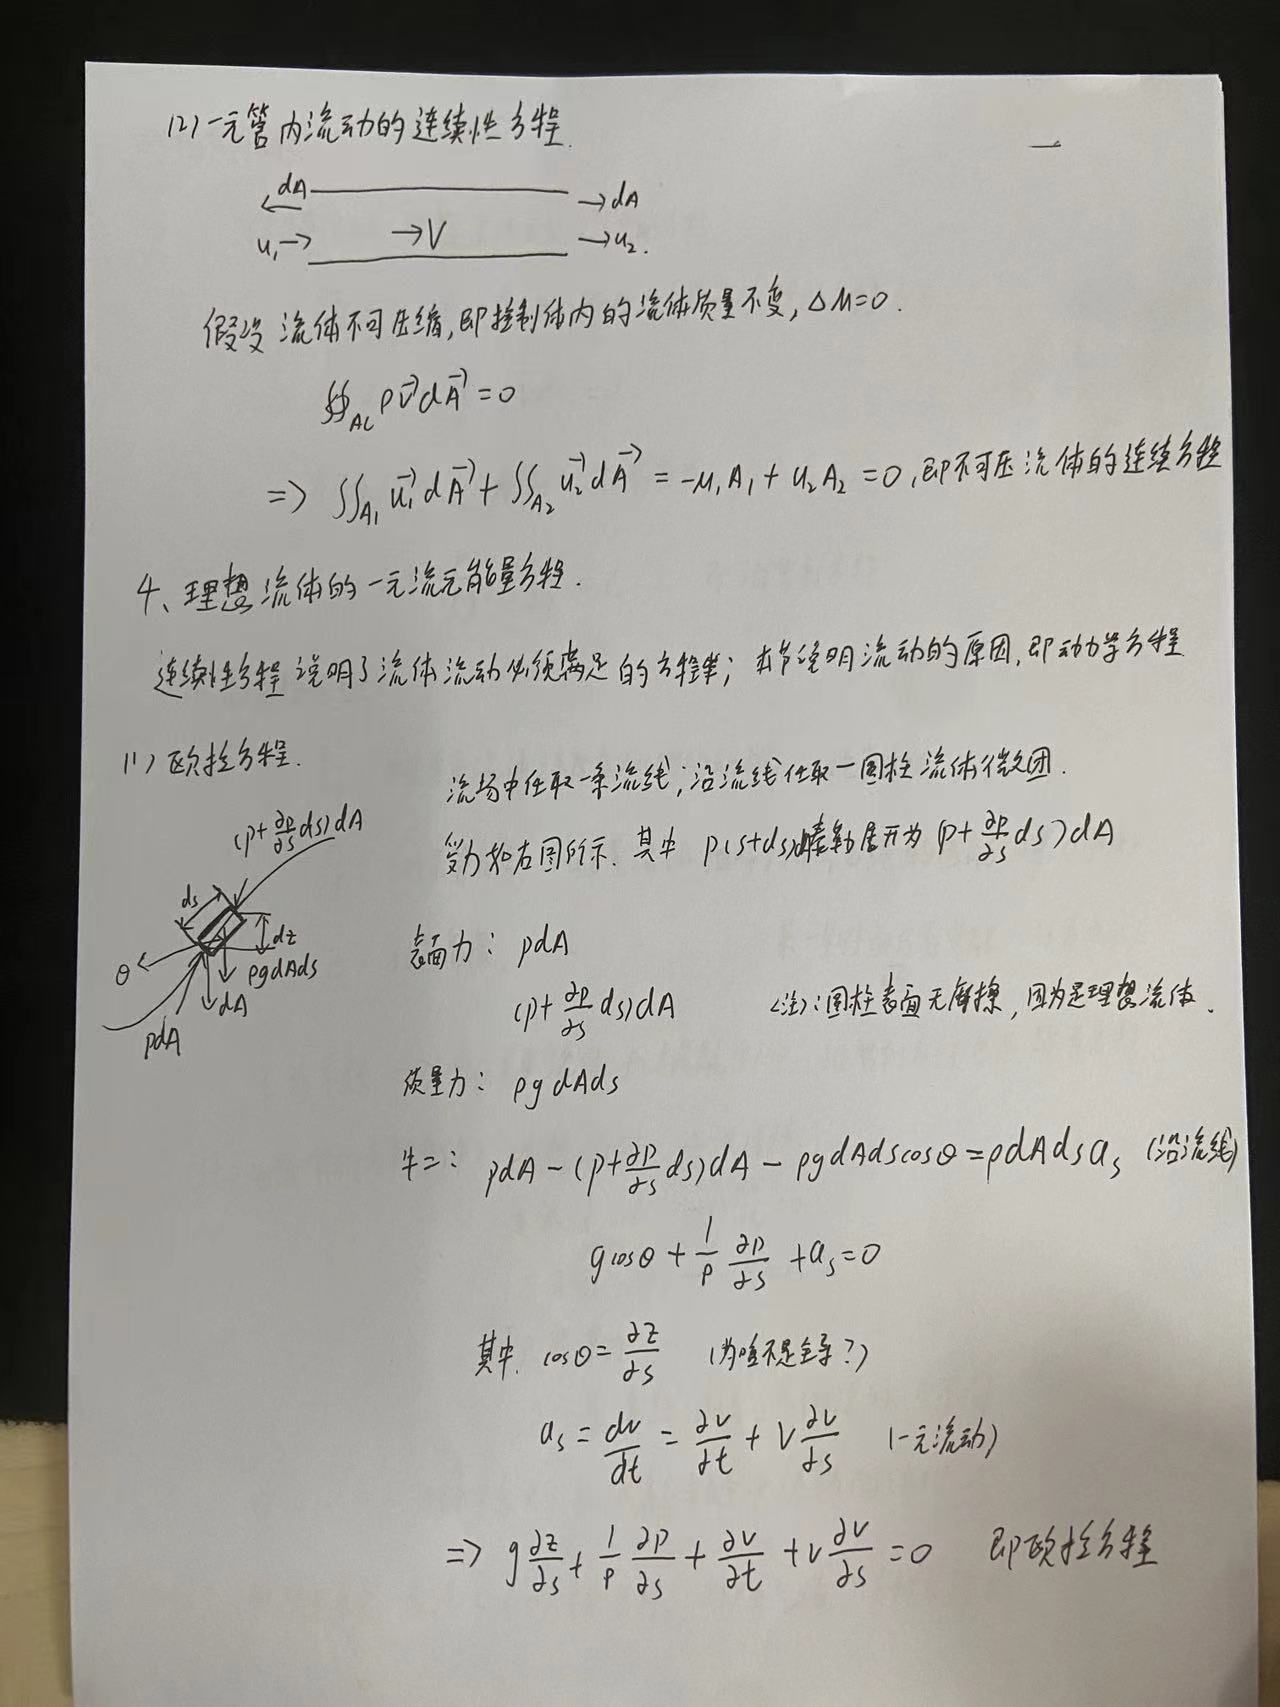 (2) 一元管内流动的连续性方程.
dA
→dA
u₁→
→V
→u₂.
假设流体不可压缩,即控制体内的流体质量不变,ΔM=0.
∯_AC ρV⃗dA⃗=0
=> ∬_A₁ u₁⃗dA⃗+∬_A₂ u₂⃗dA⃗=-u₁A₁+u₂A₂=0,即不可压流体的连续方程
4、理想流体的一元流元能量方程.
连续性方程说明了流体流动必须满足的方程;本节说明流动的原因,即动力学方程
(1) 欧拉方程.
流场中任取一条流线;沿流线任取一圆柱流体微团.
(p+∂p/∂s ds)dA
受力如右图所示.其中 p(s+ds)泰勒展开为(p+∂p/∂s ds)dA
ds
dz
θ
ρgdAds
dA
pdA
表面力: pdA
(p+∂p/∂s ds)dA <注>:圆柱表面无摩擦,因为是理想流体.
质量力: ρgdAds
牛二: pdA-(p+∂p/∂s ds)dA-ρgdAdscosθ=ρdAdsaₛ (沿流线)
gcosθ+1/ρ ∂p/∂s+aₛ=0
其中. cosθ=∂z/∂s (为啥不是全导?)
aₛ=dv/dt=∂v/∂t+V∂v/∂s (一元流动)
=> g∂z/∂s+1/ρ ∂p/∂s+∂v/∂t+v∂v/∂s=0 即欧拉方程